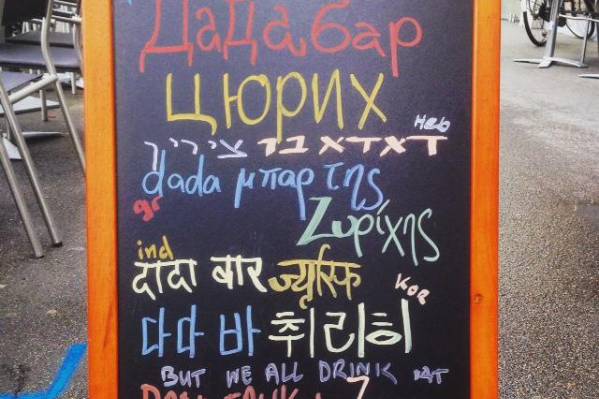 Дадабар
цюрих
Heb
דאדא בר ציריך
dada μπαρ της
gr
Ζυρίχης
ind
दादा बार ज्यूरिक
Kor
다다 바 취리히
BUT WE ALL DRINK